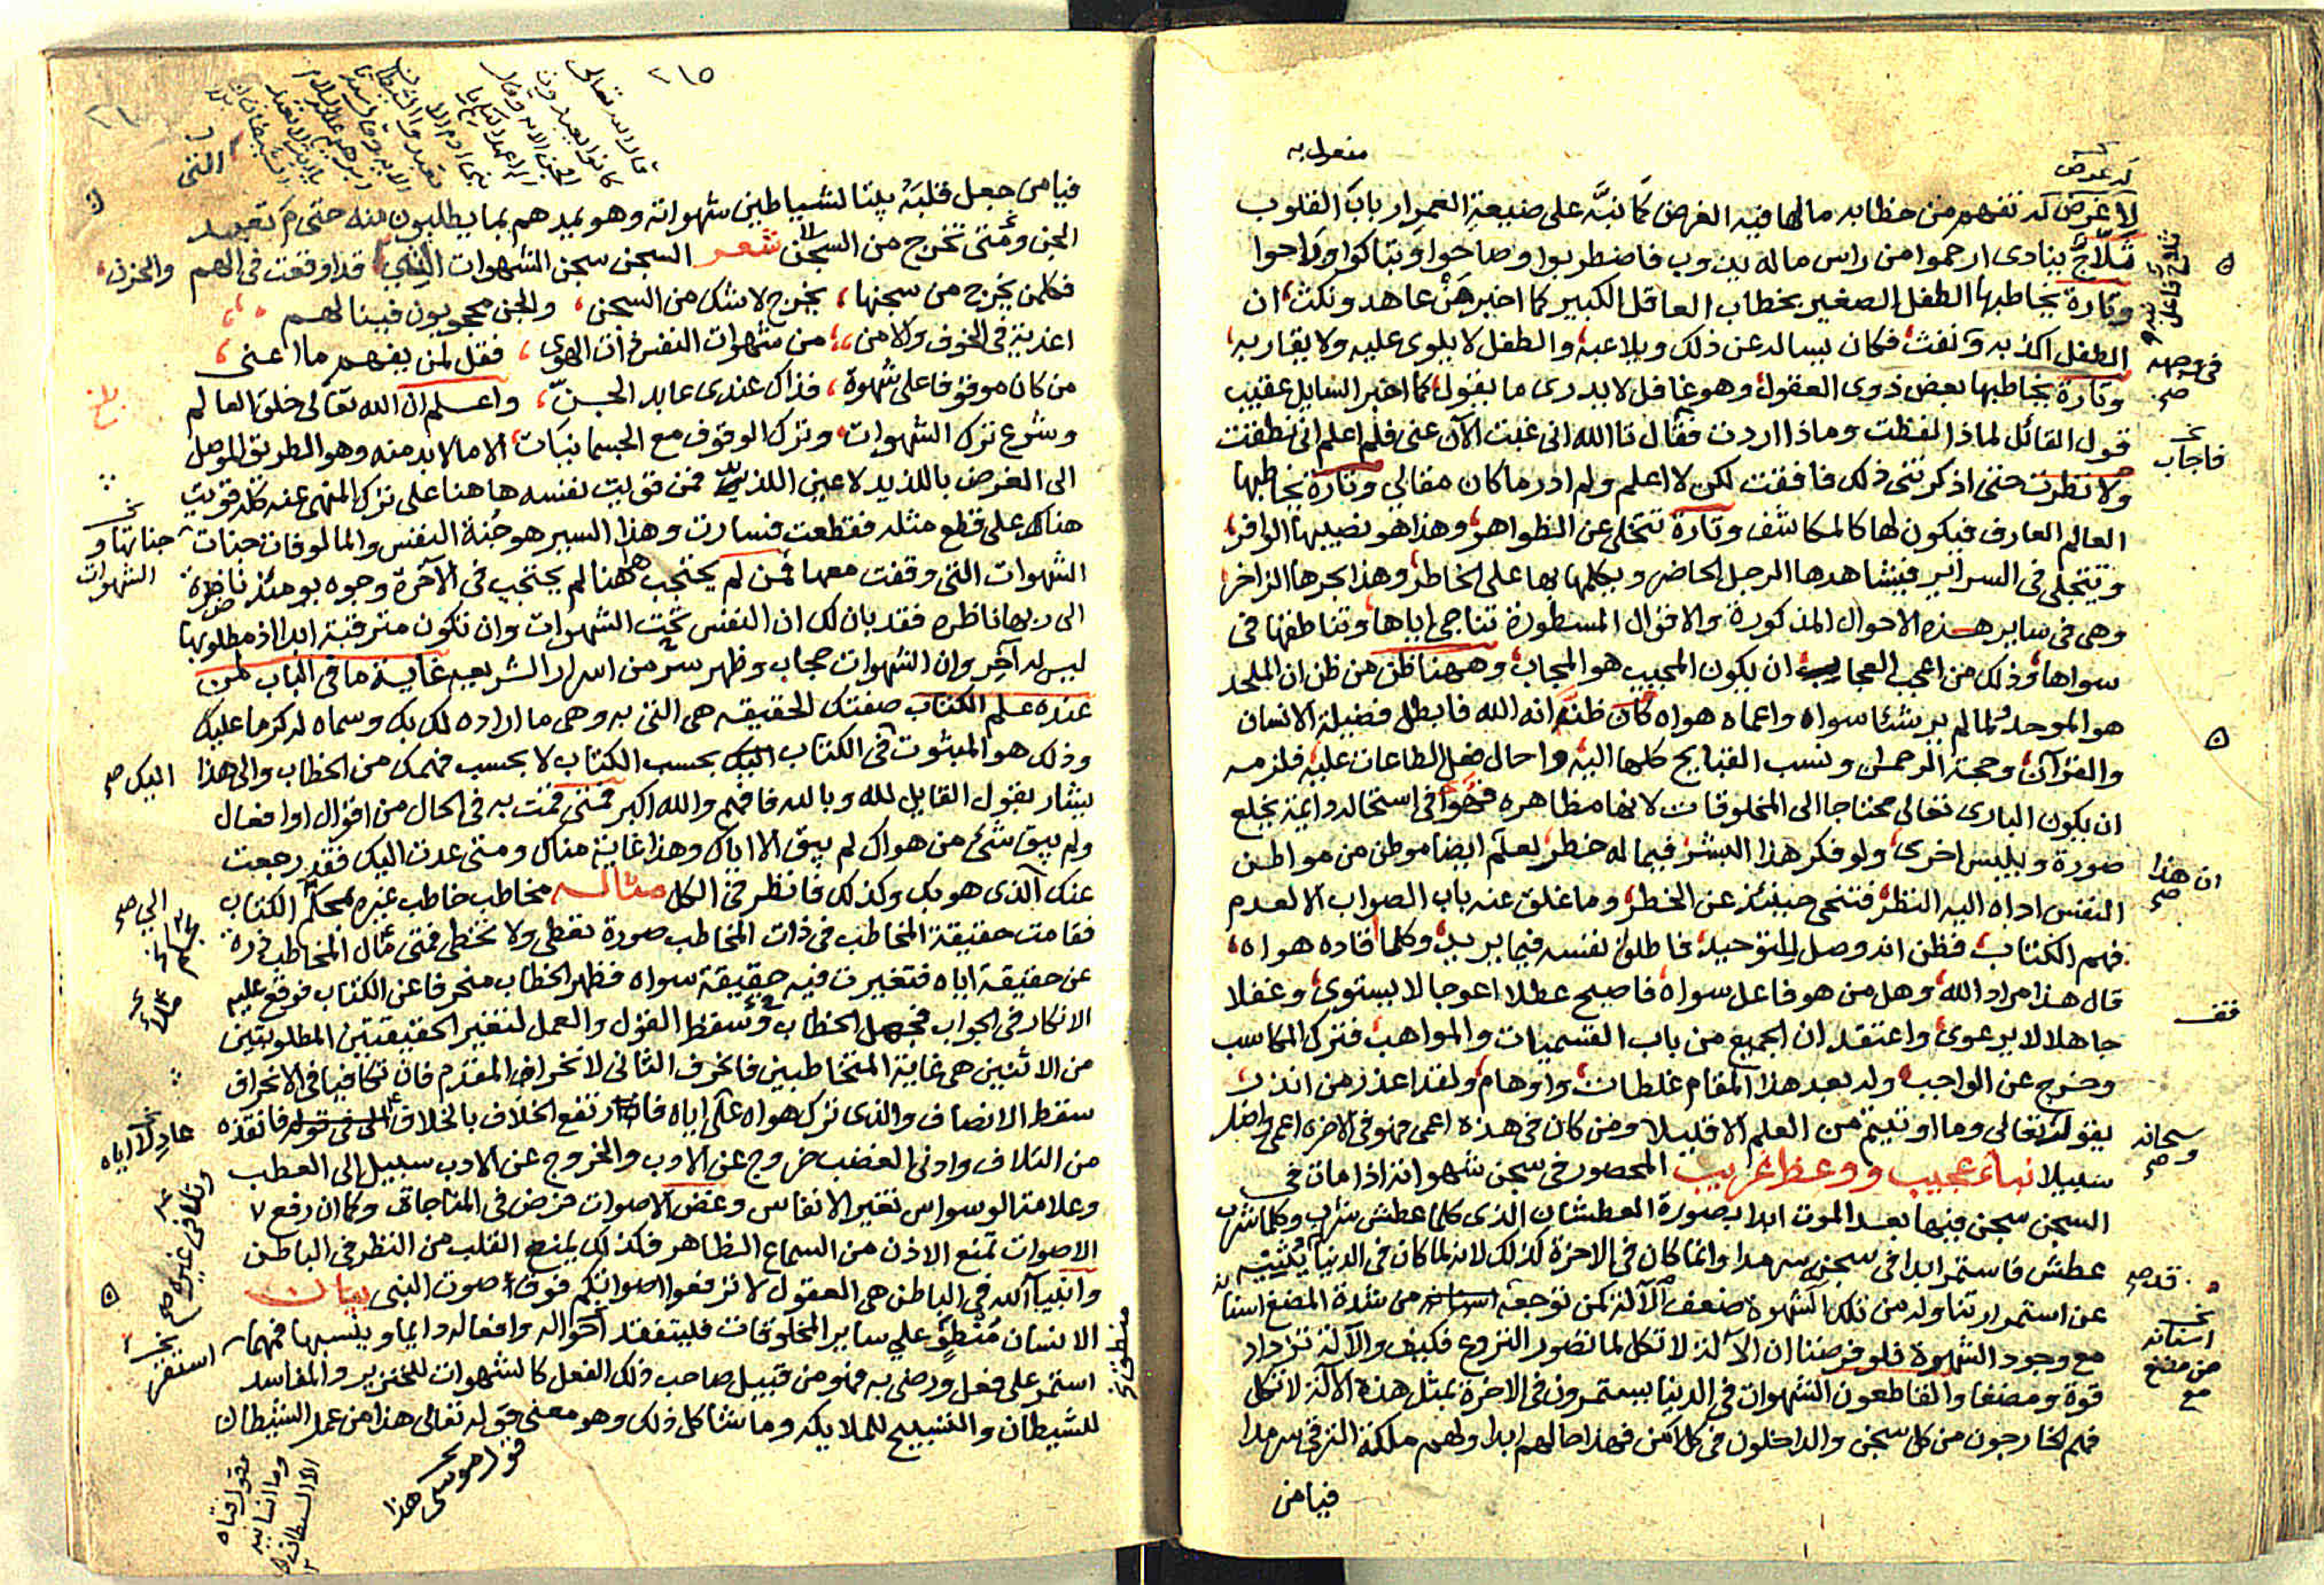 لا غرض له تفهم من خطابه ما لها فيه الغرض كما نبه على ضيعة العمر ارباب القلوب
ثلاج ينادى ارحموا من راس ماله يذوب فاضطربوا وصاحوا وتباكوا وراحوا
وتارة يخاطبها الطفل الصغير بخطاب العاقل الكبير كما اخبر من عاهد ونكث ان
الطفل اكذبه ونفث فكان يساله عن ذلك ويلاعبه والطفل لا يلوى عليه ولا يقاربه
وتارة يخاطبها بعض ذوى العقول وهو غافل لا يدرى ما يقول كما اخبر السايل عقيب
قول القائل لماذا لفظت وماذا اردت فقال تالله انى غبت الآن عنى فلم اعلم انى نطقت
ولا نظرت حتى اذكرتنى ذلك فافقت لكن لا اعلم ولم ادر ما كان مقالي وتارة يخاطبها
العالم العارف فيكون لها كالمكاشف وتارة تتخلى عن الظواهر وهذا هو نصيبها الوافر
وتتجلى فى السراير فيشاهدها الرجل الحاضر ويكلمها بها على الخاطر وهذا بحرها الزاخر
وهى فى ساير هذه الاحوال المذكورة والاقوال المسطورة تناجى اياها وتناطقها فى
سواها وذلك من اعجب العجاب ان يكون المجيب هو المجاب وههنا ظن من ظن ان الملحد
هو الموحد لما لم ير شئا سواه واعماه هواه كان ظنه انه الله فابطل فضيلة الانسان
والقرآن وحجة الرحمن ونسب القبايح كلها اليه واحال فعل الطاعات عليه فلزمه
ان يكون البارى تعالى محتاجا الى المخلوقات لانها مظاهره فهو فى استحاله دائمة يخلع
صورة ويلبس اخرى ولو فكر هذا البشر فيما له خطر لعلم ايضا موطن من مواطن
النفس اداه اليه النظر فتنحى حينئذ عن الخطر وما غلق عنه باب الصواب الا لعدم
فهم الكتاب فظن انه وصل للتوحيد فاطلق نفسه فيما يريد وكلما قاده هواه
قال هذا مراد الله وهل من هو فاعل سواه فاصبح عطلا اعوجا لا يستوى وغفلا
جاهلا لا يرعوى واعتقد ان الجميع من باب القسميات والمواهب فترك المكاسب
وخرج عن الواجب وله بعد هذا المقام غلطات واوهام ولقد اعذر من انذر
بقوله تعالى وما اوتيتم من العلم الا قليلا ومن كان فى هذه اعمى فهو فى الآخرة اعمى واضل
سبيلا نباء عجيب ووعظ غريب المحصور فى سجن شهواته اذا مات فى
السجن سجن فيها بعد الموت ابدا بصورة العطشان الذى كلما عطش شرب وكلما شرب
عطش فاستمر ابدا فى سجنه سرمدا وانما كان فى الاخرة كذلك لانه لما كان فى الدنيا يثنيه
عن استمرار تناوله من تلك الشهوة ضعف الآلة كمن توجعه من شدة المضغ اسنا
مع وجود الشهوة فلو فرضنا ان الآلة لا تكل لما تصور النزوع فكيف والآلة تزداد
قوة ومضغا والقاطعون الشهوات فى الدنيا يستمرون فى الاخرة بمثل هذه الآلة لا تكل
فهم الخارجون من كل سجن والداخلون فى كل امن فهذا حالهم ابدا ولهم ملكة الترقى سرمدا
فيا من
فيا من جعل قلبه بيتا لشياطين شهواته وهو يمدهم بما يطلبون منه حتى م تعبد
الجن ومتى تخرج من السجن شعر السجن سجن الشهوات التى قد اوقعت فى الهم والحزن
فكل من يخرج من سجنها يخرج لا شك من السجن والجن محجوبون فينا لهم
اغذية فى الخوف والامن من شهوات النفس ذات الهوى فقل لمن يفهم ما اعنى
من كان موقوفا على شهوة فذاك عندى عابد الجن واعلم ان الله تعالى خلق العالم
وشرع ترك الشهوات وترك الوقوف مع الجسمانيات الا ما لا بد منه وهو الطريق الموصل
الى الغرض باللذيد لا عين اللذيد فمن قويت نفسه هاهنا على ترك المنهى عنه قويت
هناك على قطع مثله فقطعت فسارت وهذا السير هو جنة النفس والمالوفات جنات
الشهوات التى وقفت معها فمن لم يحتجب ههنا لم يحتجب فى الآخرة وجوه يومئذ ناضرة
الى ربها ناظره فقد بان لك ان النفس تحت الشهوات وان تكون مترقبة ابدا اذ مطلوبها
ليس له آخر وان الشهوات حجاب وظهر سر من اسرار الشريعه غاية ما فى الباب لمن
عنده علم الكتاب صفتك الحقيقه هى التى به وهى ما اراده لك بك وسماه لم كرما عليك
وذلك هو المبثوت فى الكتاب اليك بحسب الكتاب لا بحسب فهمك من الخطاب والى هذا
يشار بقول القايل لله وبالله فافهم والله اكبر فمتى قمت به فى الحال من اقوال او افعال
ولم يبق شئ من هواك لم يبق الا اياك وهذا غاية مناك ومتى عدت اليك فقد رجعت
عنك الذى هو بك وكذلك فانظر فى الكل مثاله مخاطب خاطب غيره بمحكم الكتاب
فقامت حقيقة المخاطب فى ذات المخاطب صورة تعطى ولا تخطى فمتى مال المخاطب ذرة
عن حقيقة اياه فتغيرت فيه حقيقة سواه فظهر الخطاب منحرفا عن الكتاب فوقع عليه
الانكار فى الجواب فجهل الخطاب وسقط القول والعمل لتغير الحقيقتين المطلوبتين
من الاثنين هى غاية المتخاطبين فانحرف الثانى لانحراف المقدم فان تكافيا فى الانحراف
سقط الانصاف والذى ترك هواه على اياه فارتفع الخلاف بالخلاف فانقذه
من التلاف وادنى الغضب خروج عن الادب والخروج عن الادب سبيل الى العطب
وعلامة الوسواس تغير الانفاس وغض الاصوات فرض فى المناجاة وكما ان رفع
الاصوات تمنع الاذن من السماع الظاهر فكذلك يمنع القلب من النظر فى الباطن
وانبياء الله فى الباطن هى العقول لا ترفعوا اصواتكم فوق صوت النبى بيان
الانسان منطو على ساير المخلوقات فليتفقد احواله وافعاله دايما وينسبها فمهما
استمر على فعل ورضى به فهو من قبيل صاحب ذلك الفعل كالشهوات للخنزير والمفاسد
للشيطان والتسبيح للملايكه وما شاكل ذلك وهو معنى قوله تعالى هذا من عمل الشيطان